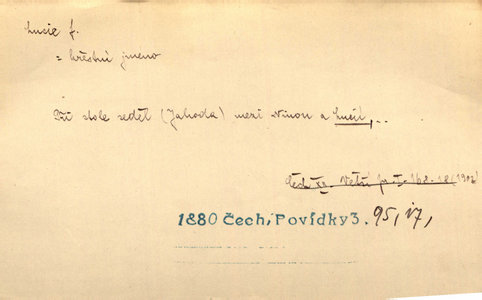 Lucie f.
= křestní jmeno
Při stole seděl (Jahoda) mezi Ninou a Lucií,..
Čech Sv. 168. 18 (1902)
1880 Čech, Povídky 3. 95, 17,